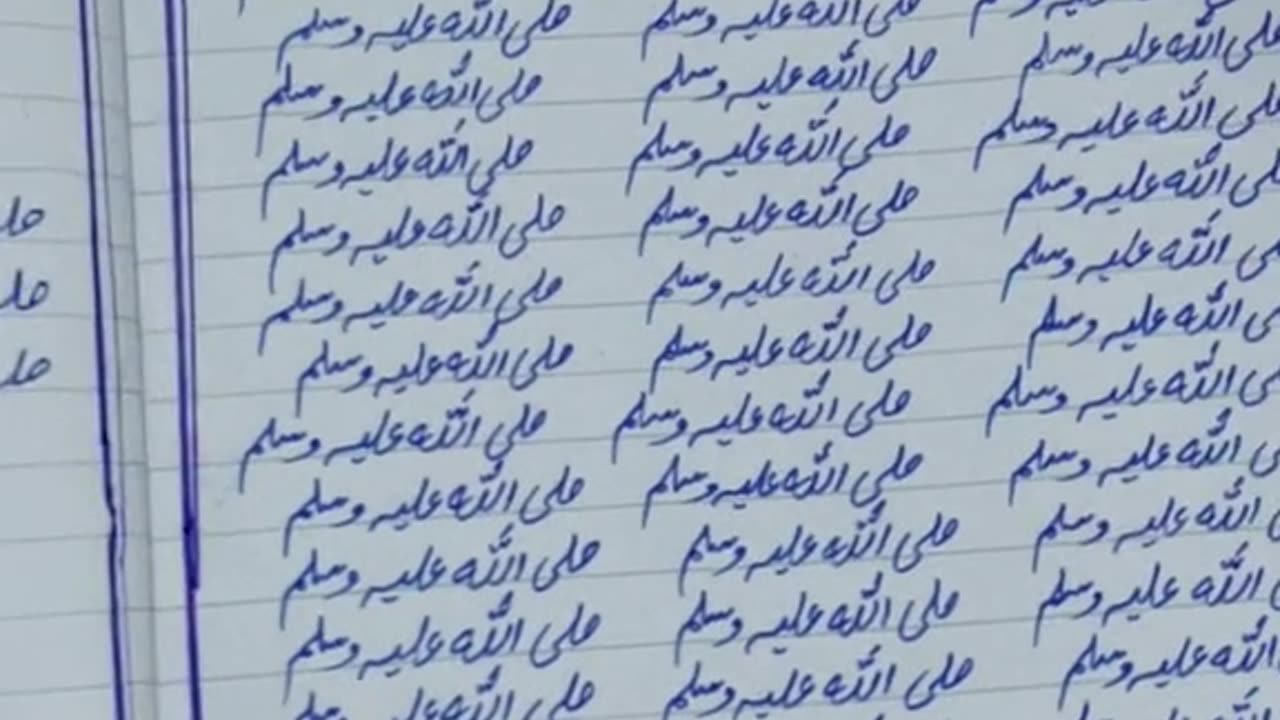 صلی اللہ علیہ وسلم صلی اللہ علیہ وسلم
صلی اللہ علیہ وسلم صلی اللہ علیہ وسلم صلی اللہ علیہ وسلم
صلی اللہ علیہ وسلم صلی اللہ علیہ وسلم صلی اللہ علیہ وسلم
صلی اللہ علیہ وسلم صلی اللہ علیہ وسلم صلی اللہ علیہ وسلم
صلی اللہ علیہ وسلم صلی اللہ علیہ وسلم صلی اللہ علیہ وسلم
اللہ علیہ وسلم صلی اللہ علیہ وسلم صلی اللہ علیہ وسلم
اللہ علیہ وسلم صلی اللہ علیہ وسلم صلی اللہ علیہ وسلم
اللہ علیہ وسلم صلی اللہ علیہ وسلم صلی اللہ علیہ وسلم
اللہ علیہ وسلم صلی اللہ علیہ وسلم صلی اللہ علیہ وسلم
اللہ علیہ وسلم صلی اللہ علیہ وسلم صلی اللہ علیہ وسلم
اللہ علیہ وسلم صلی اللہ علیہ وسلم صلی اللہ علیہ وسلم